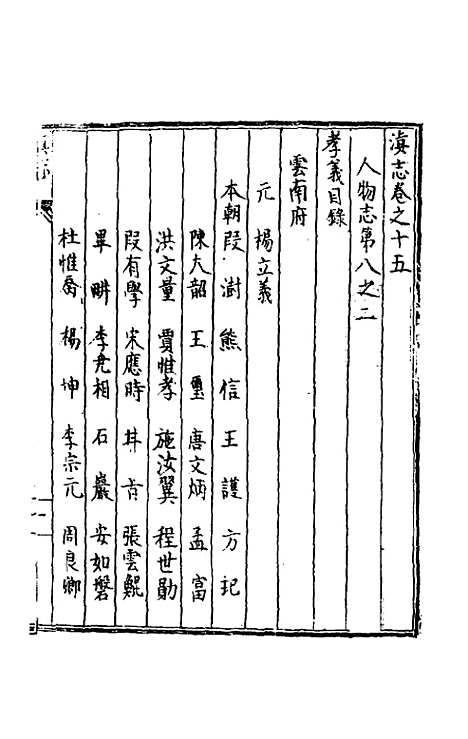 滇志卷之十五
人物志第八之二
孝義目錄
雲南府
元 楊立義
本朝段澍 熊信 王護 方玘
陳大韶 王璽 唐文炳 孟富
洪文量 賈惟孝 施汝翼 程世勛
段有學 宋應時 井 張雲鯤
畢畊 李堯相 石巖 安如磐
杜惟喬 楊坤 李宗元 周良卿